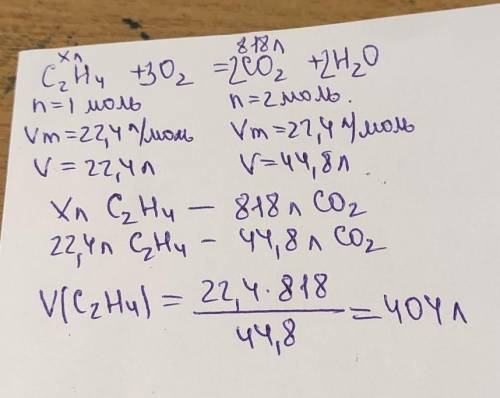 xл 818л
C₂H₄ +3O₂ =2CO₂ +2H₂O
n=1 моль n=2моль.
Vm=22,4 л/моль Vm=22,4 л/моль
V=22,4л V=44,8л
Xл C₂H₄ – 818л CO₂
22,4л C₂H₄ – 44,8л CO₂
V(C₂H₄) = 22,4·818 / 44,8 = 404л